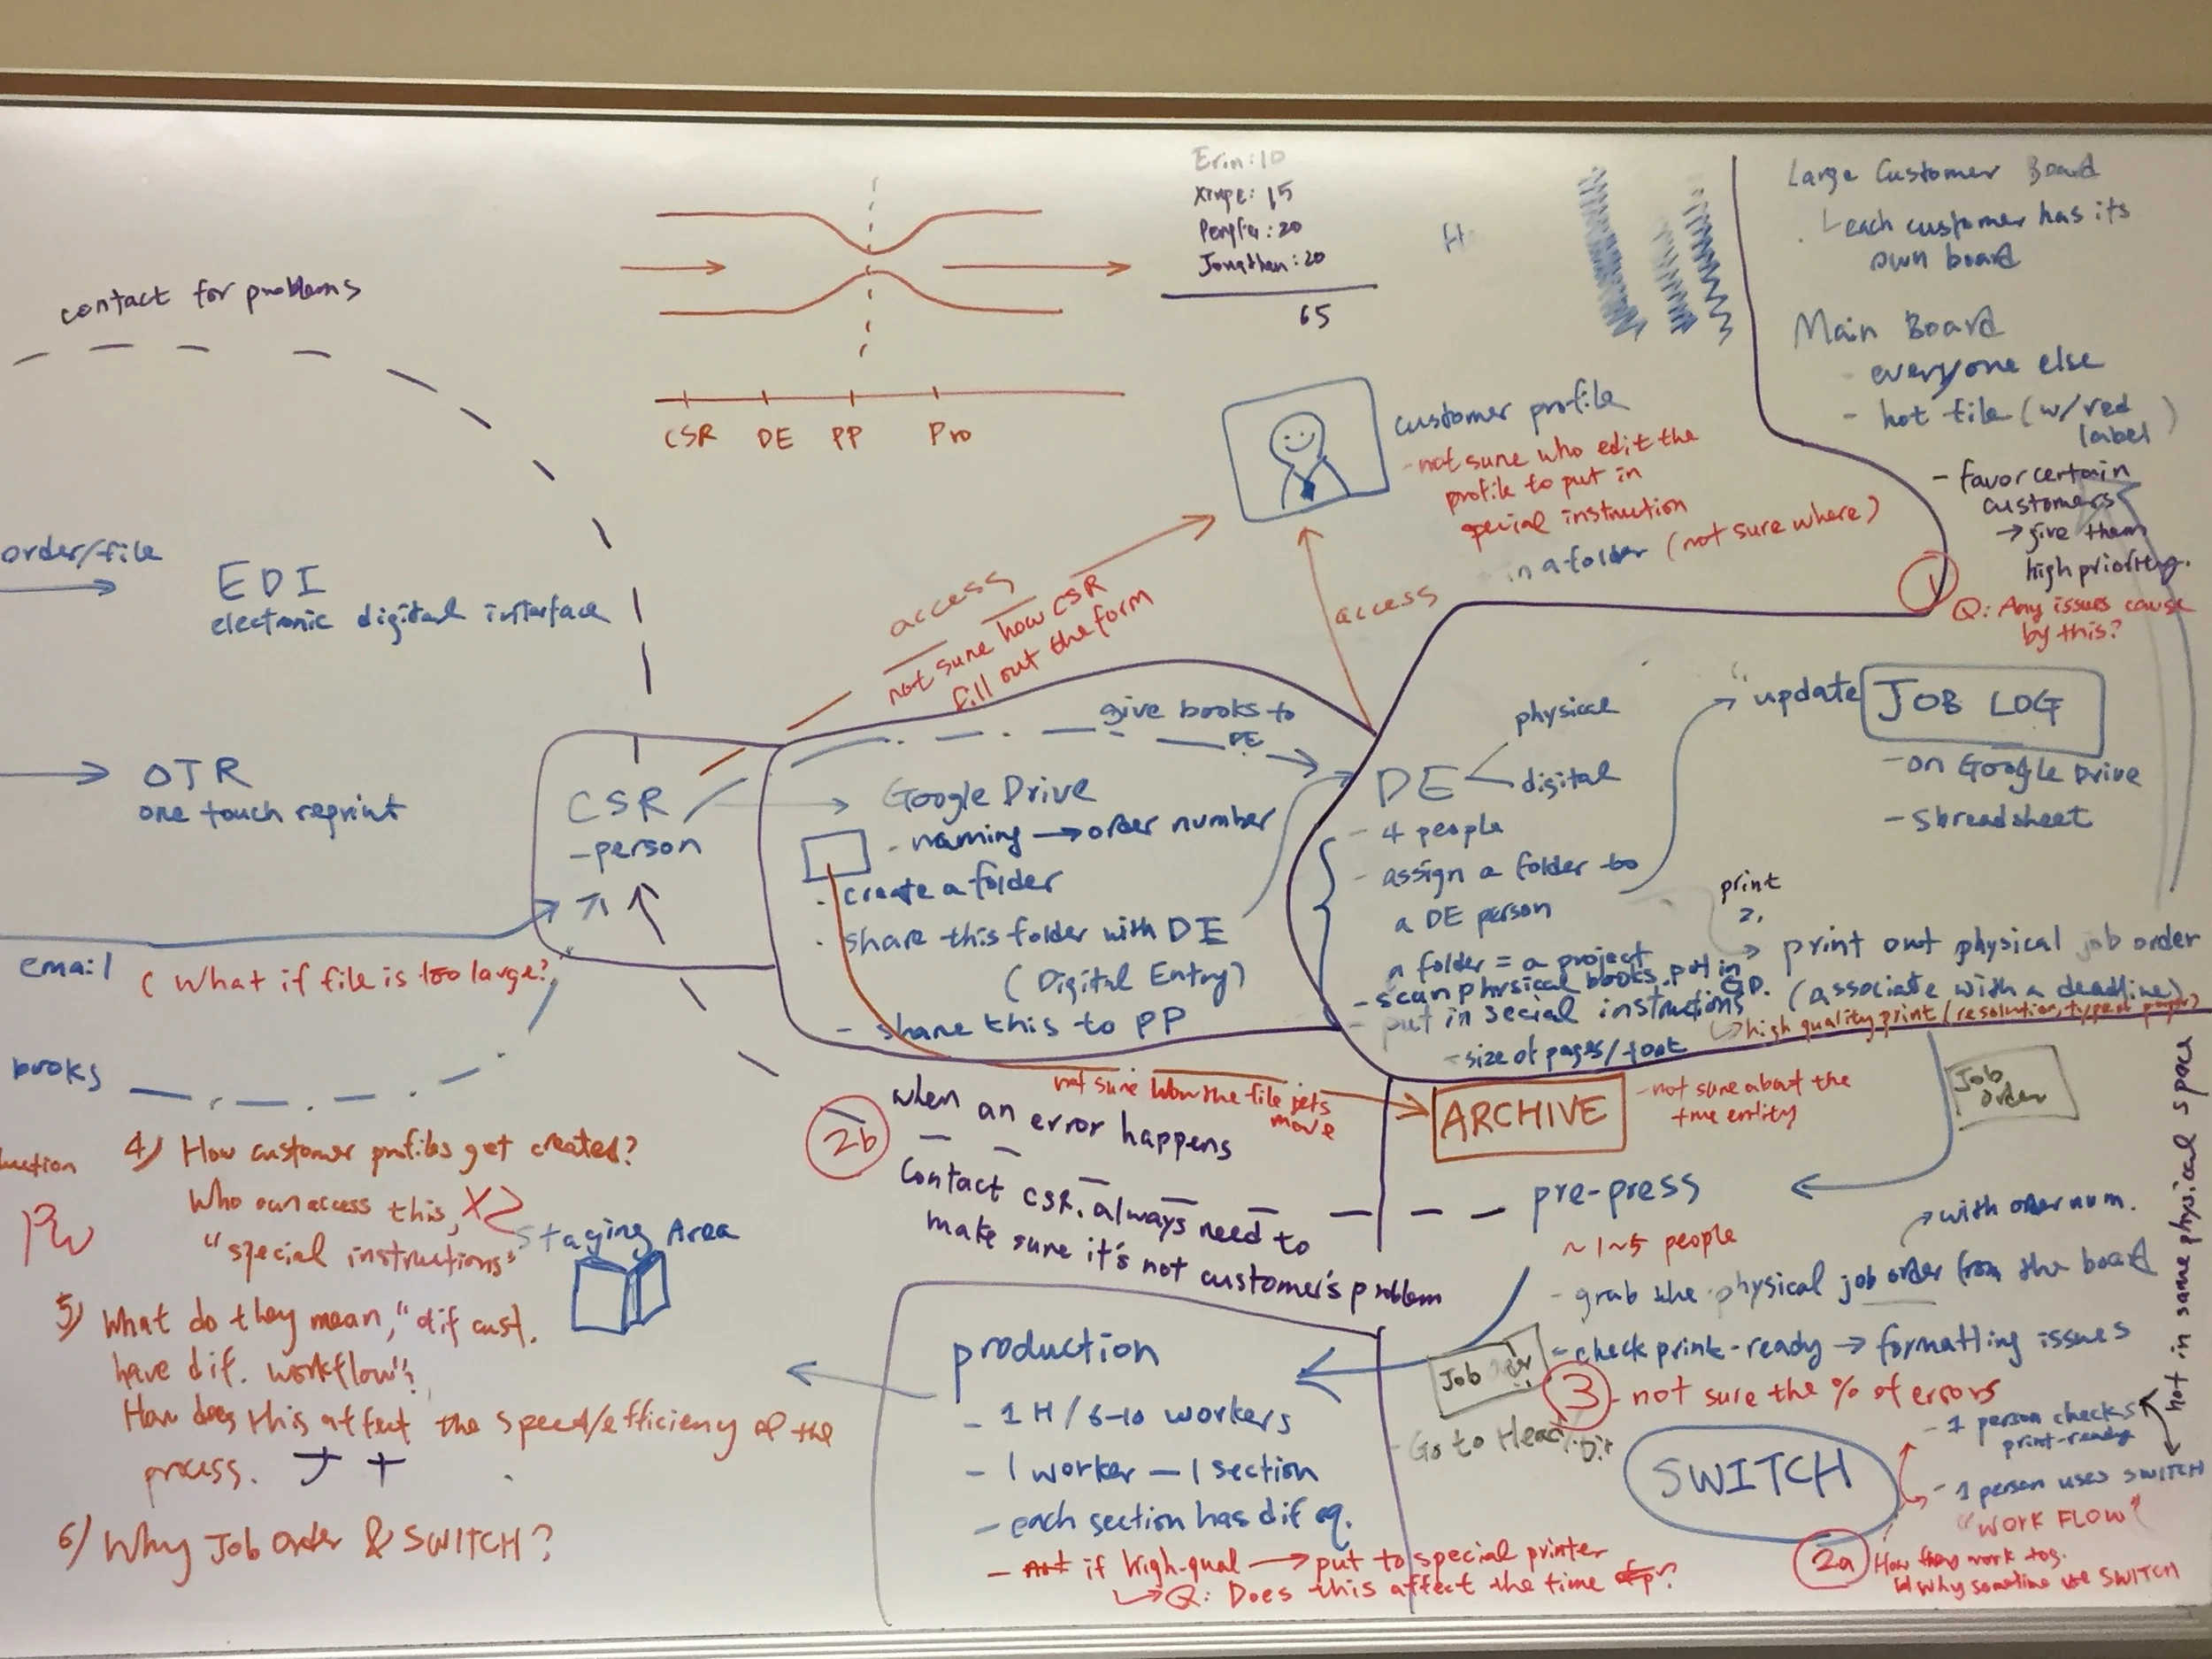 Erin: 10
: 15
: 20
Jonathan: 20
65
Large Customer Board
each customer has its
own board
Main Board
- everyone else
- hot file (w/red
label)
- favor certain
customers
→ give them
high priority.
1
Q: Any issues cause
by this?
contact for problems
CSR DE PP Pro
customer profile
- not sure who edit the
profile to put in
special instruction
in a folder (not sure where)
order/file
EDI
electronic digital interface
access
not sure how CSR
fill out the form
access
OTR
one touch reprint
CSR
- person
email
( What if file is too large?
books
give books to
DE
Google Drive
- naming → order number
- create a folder
- share this folder with DE
(Digital Entry)
- share this to PP
DE
physical
digital
- 4 people
- assign a folder to
a DE person
a folder = a project
- scan physical books, put in GD.
- put in secial instructions
- size of pages/foot
update JOB LOG
- on Google Drive
- spreadsheet
print
2.
print out physical job order
(associate with a deadline)
high quality print (resolution, type of paper)
Job
order
not sure how the file gets
move
ARCHIVE
- not sure about the
true entity
2b
when an error happens
Contact CSR. always need to
make sure it's not customer's problem
pre-press
~1~5 people
with order num.
- grab the physical job order from the board
- check print-ready → formatting issues
3
- not sure the % of errors
Job
Go to Head
SWITCH
- 1 person checks
print-ready
- 1 person uses SWITCH
"WORK FLOW"
not in same physical space
2a
How they work tog.
why sometime use SWITCH
production
- 1 H / 6-10 workers
- 1 worker — 1 section
- each section has dif eq.
- if high-qual → put to special printer
Q: Does this affect the time
Staging Area
uction
4) How customer profiles get created?
Who can access this,
"special instructions"
5) What do they mean, "dif cust.
have dif. workflow"?
How does this affect the speed/efficiency of the
process.
6) Why Job Order & SWITCH?